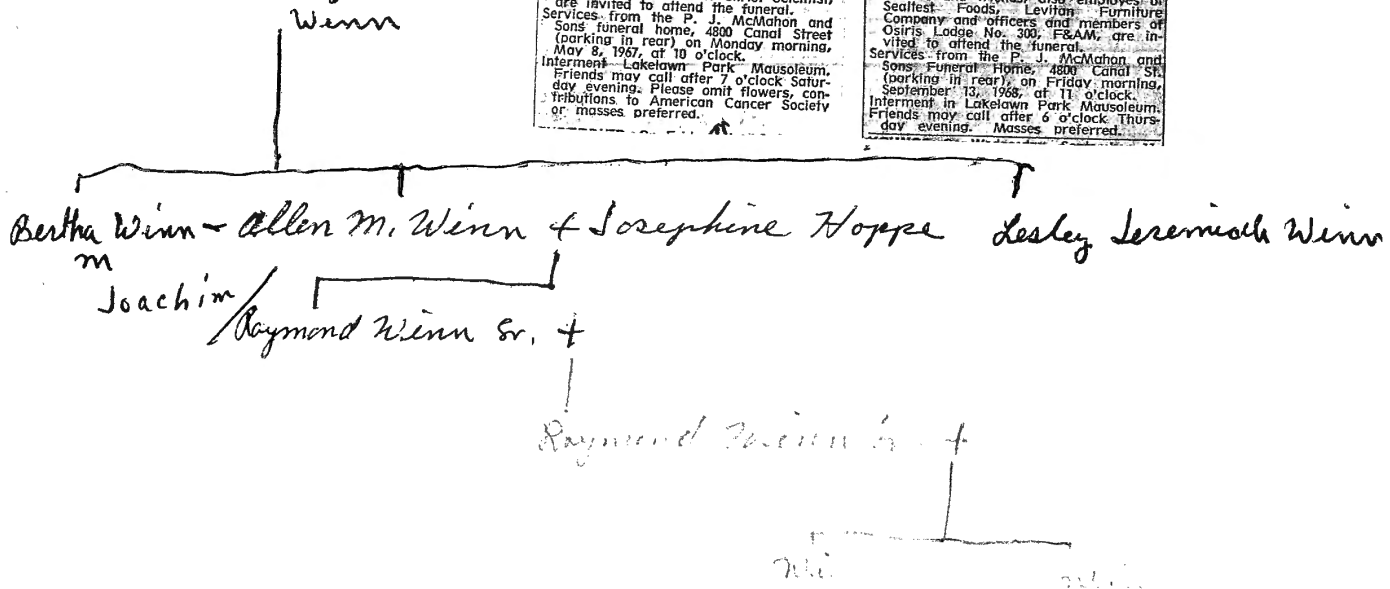 Winn
are invited to attend the funeral.
Services from the P. J. McMahon and
Sons funeral home, 4800 Canal Street
(parking in rear) on Monday morning,
May 8, 1967, at 10 o'clock.
Interment Lakelawn Park Mausoleum.
Friends may call after 7 o'clock Satur-
day evening. Please omit flowers, con-
tributions to American Cancer Society
or masses preferred.
Sealtest Foods, Levitan Furniture
Company and officers and members of
Osiris Lodge No. 300, F&AM, are in-
vited to attend the funeral.
Services from the P. J. McMahon and
Sons Funeral Home, 4800 Canal St.
(parking in rear), on Friday morning,
September 13, 1968, at 11 o'clock.
Interment in Lakelawn Park Mausoleum.
Friends may call after 6 o'clock Thurs-
day evening. Masses preferred.
Bertha Winn - Allen M. Winn + Josephine Hoppe Lesley Jeremiah Winn
m
Joachim / Raymond Winn Sr. +
Raymond Winn Jr. +